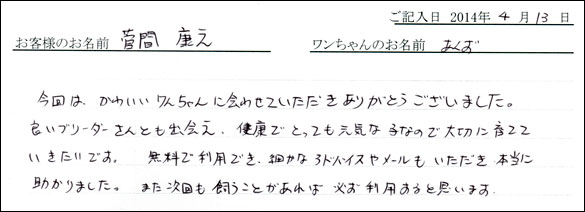 ご記入日 2014年 4 月 13 日
お客様のお名前 菅間 康え ワンちゃんのお名前 あんず
今回は、かわいいワンちゃんに会わせていただきありがとうございました。
良いブリーダーさんとも出会え、健康でとっても元気な子なので大切に育てて
いきたいです。 無料で利用でき、細かなアドバイスやメールもいただき本当に
助かりました。また次回も飼うことがあれば必ず利用すると思います。